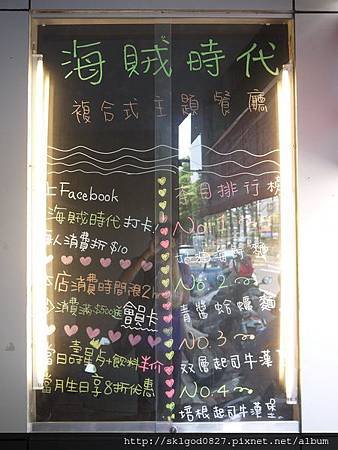 海賊時代
複合式主題餐廳
上Facebook
海賊時代打卡
每人消費折$10
本店消費時間限2
消費滿$500送會員卡
當日壽星点+飲料半价
當月生日享8折优惠
本月排行榜
No.1
海鮮麵
No.2
青醬蛤蠣麵
NO.3
双層起司牛漢
NO.4
培根起司牛漢堡
http://sklgod0827.pixnet.net/album